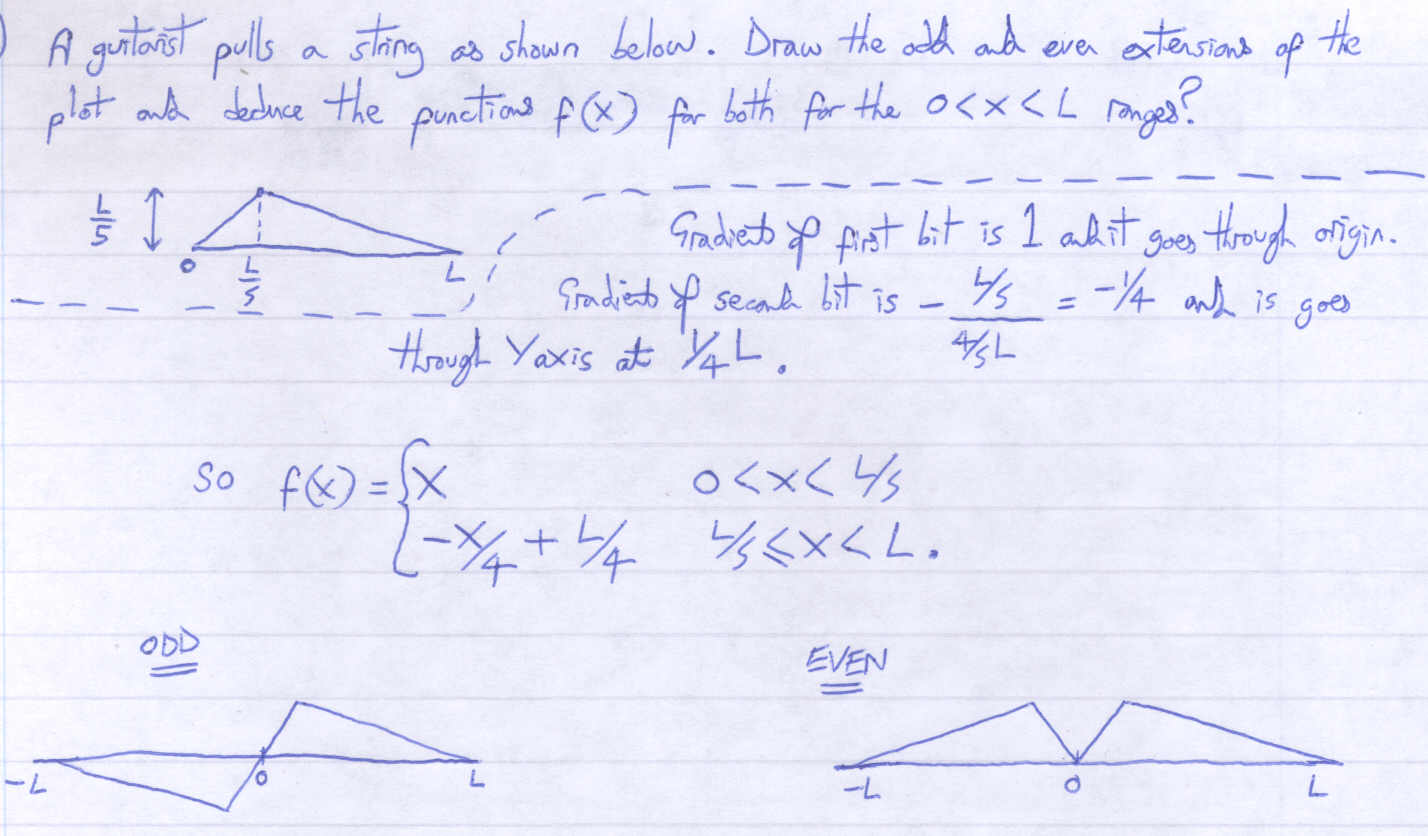 ) A guitarist pulls a string as shown below. Draw the odd and even extensions of the
plot and deduce the functions f(x) for both for the 0 < x < L ranges?
L/5
0 L/5 L
Gradient of first bit is 1 and it goes through origin.
Gradient of second bit is - (L/5)/(4/5 L) = -1/4 and is goes
through Y axis at 1/4 L.
So f(x) = { x 0 < x < L/5
-x/4 + L/4 L/5 ≤ x < L.
ODD EVEN
-L 0 L -L 0 L